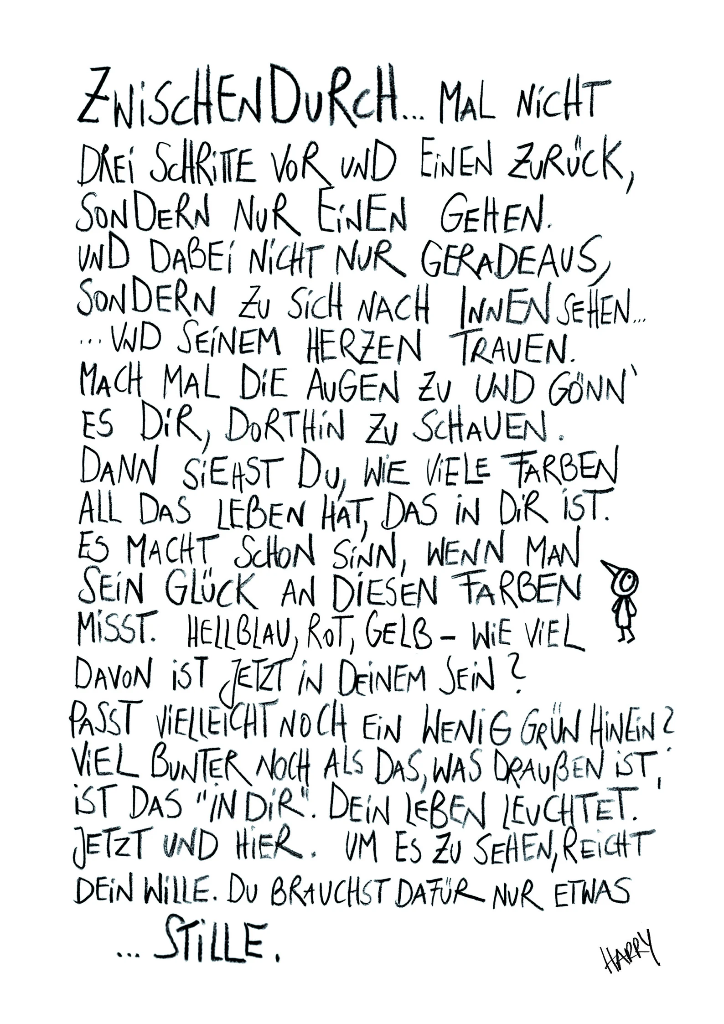 ZWISCHENDURCH... MAL NICHT
DREI SCHRITTE VOR UND EINEN ZURÜCK,
SONDERN NUR EINEN GEHEN.
UND DABEI NICHT NUR GERADEAUS,
SONDERN ZU SICH NACH INNEN SEHEN...
...UND SEINEM HERZEN TRAUEN.
MACH MAL DIE AUGEN ZU UND GÖNN'
ES DIR, DORTHIN ZU SCHAUEN.
DANN SIEHST DU, WIE VIELE FARBEN
ALL DAS LEBEN HAT, DAS IN DIR IST.
ES MACHT SCHON SINN, WENN MAN
SEIN GLÜCK AN DIESEN FARBEN
MISST. HELLBLAU, ROT, GELB – WIE VIEL
DAVON IST JETZT IN DEINEM SEIN?
PASST VIELLEICHT NOCH EIN WENIG GRÜN HINEIN?
VIEL BUNTER NOCH ALS DAS, WAS DRAUẞEN IST,
IST DAS "IN DIR". DEIN LEBEN LEUCHTET.
JETZT UND HIER. UM ES ZU SEHEN, REICHT
DEIN WILLE. DU BRAUCHST DAFÜR NUR ETWAS
... STILLE.
HARRY